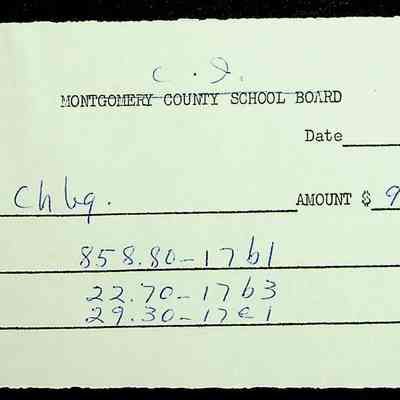 C. I.
MONTGOMERY COUNTY SCHOOL BOARD
Date
Chbg. AMOUNT $ 9
858.80-17b1
22.70-17b3
29.30-17e1